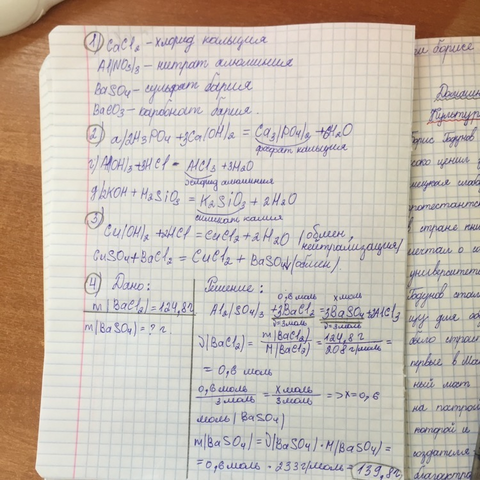 1) CaCl2 - хлорид кальция
Al(NO3)3 - нитрат алюминия
BaSO4 - сульфат бария
BaCO3 - карбонат бария.
2) а) 2H3PO4 + 3Ca(OH)2 = Ca3(PO4)2 + 6H2O
фосфат кальция
г) Al(OH)3 + 3HCl = AlCl3 + 3H2O
хлорид алюминия
д) 2KOH + H2SiO3 = K2SiO3 + 2H2O
силикат калия
3) Cu(OH)2 + 2HCl = CuCl2 + 2H2O (обмен,
нейтрализация)
CuSO4 + BaCl2 = CuCl2 + BaSO4↓ (обмен)
4) Дано:
m(BaCl2) = 124,8г
m(BaSO4) = ? г
Решение:
0,6 моль x моль
Al2(SO4)3 + 3BaCl2 = 3BaSO4 + 2AlCl3
ν=3моль ν=3моль
ν(BaCl2) = m(BaCl2)/M(BaCl2) = 124,8г/208 г/моль =
= 0,6 моль
0,6 моль/3 моль = x моль/3 моль = > x = 0,6
моль (BaSO4)
m(BaSO4) = ν(BaSO4) · M(BaSO4) =
= 0,6 моль · 233 г/моль = 139,8г.
ри борисе
Домашн
Культур
Борис Годунов
в стране кни
мечтал о со
университет
Годунов стал
было строит
первые в Мос
ный мост
на построй
которой и
создателя